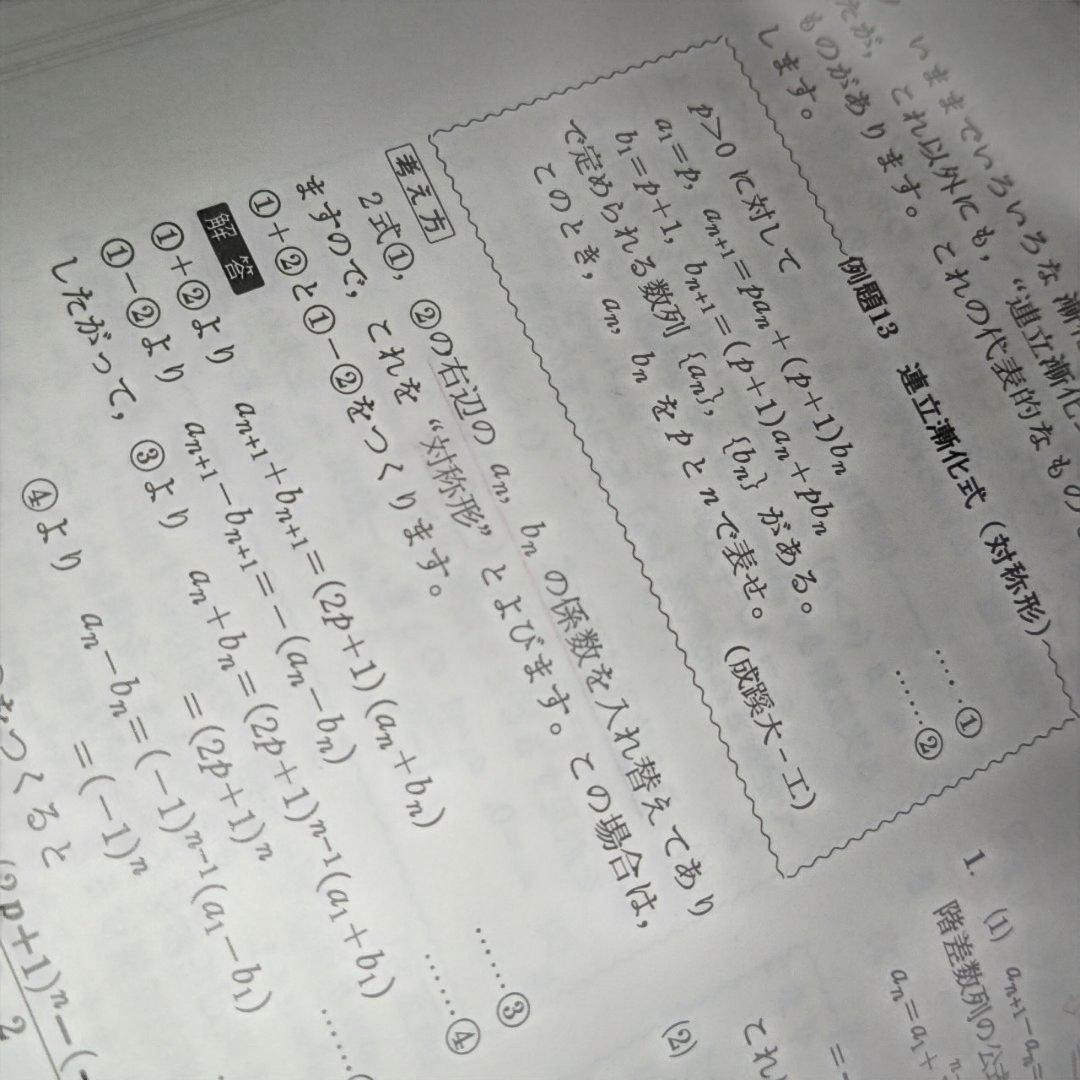 いままでいろいろな漸化
たが, これ以外にも, “連立漸化
ものがあります。 これの代表的なもの
します。
例題13 連立漸化式 (対称形)
p>0 に対して
a₁=p, aₙ₊₁=paₙ+(p+1)bₙ ……①
b₁=p+1, bₙ₊₁=(p+1)aₙ+pbₙ ……②
で定められる数列 {aₙ}, {bₙ} がある。
このとき, aₙ, bₙ を p と n で表せ。 (成蹊大-工)
考え方
2式①, ②の右辺の aₙ, bₙ の係数を入れ替えてあり
ますので, これを “対称形” とよびます。この場合は,
①+②と①-②をつくります。
解答
①+②より aₙ₊₁+bₙ₊₁=(2p+1)(aₙ+bₙ) ……③
①-②より aₙ₊₁-bₙ₊₁=-(aₙ-bₙ) ……④
したがって, ③より aₙ+bₙ=(2p+1)ⁿ⁻¹(a₁+b₁)
=(2p+1)ⁿ ……
④より aₙ-bₙ=(-1)ⁿ⁻¹(a₁-b₁)
=(-1)ⁿ
つくると
(2p+1)ⁿ-(-
2
1.
(1) aₙ₊₁-aₙ=
階差数列の公式
aₙ=a₁+
(2)
これ